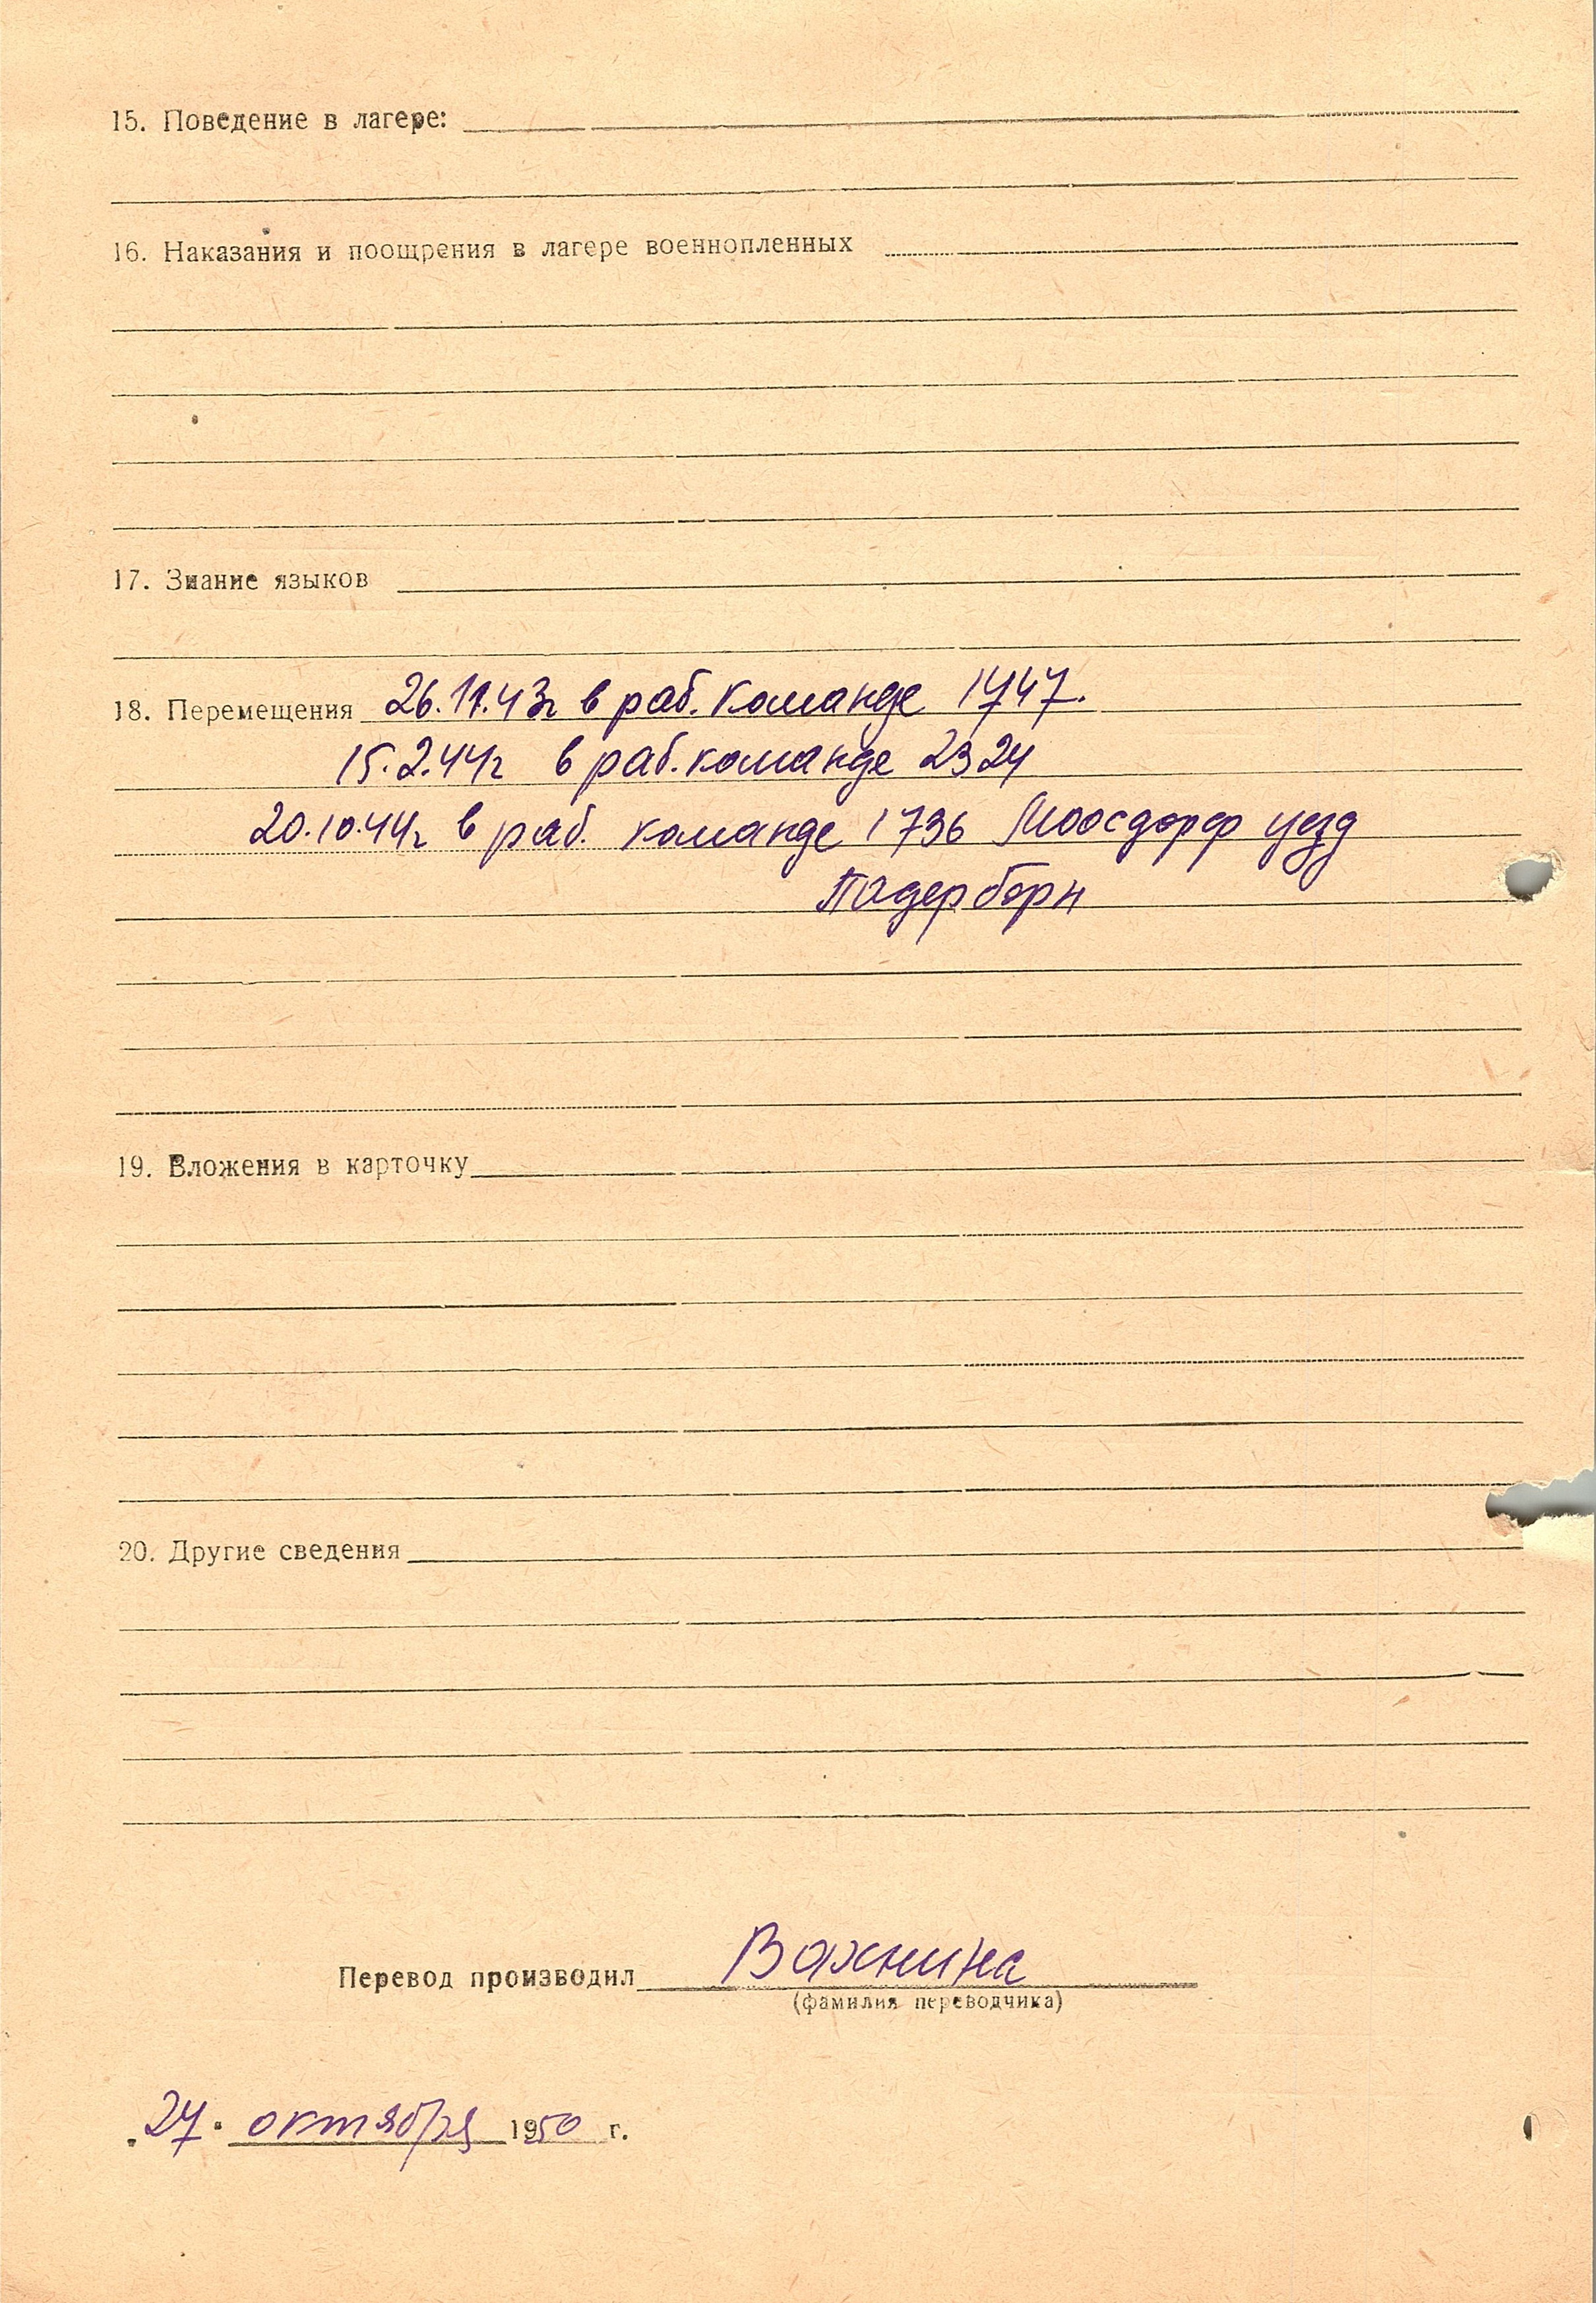 15. Поведение в лагере:
16. Наказания и поощрения в лагере военнопленных
17. Знание языков
18. Перемещения 26.11.43г в раб. команде 1747.
15.2.44г в раб. команде 2324
20.10.44г в раб. команде 1736 Моосдорф уезд
Падерборн
19. Вложения в карточку
20. Другие сведения
Перевод производил Вахнина
(фамилия переводчика)
„27" октября 1950 г.